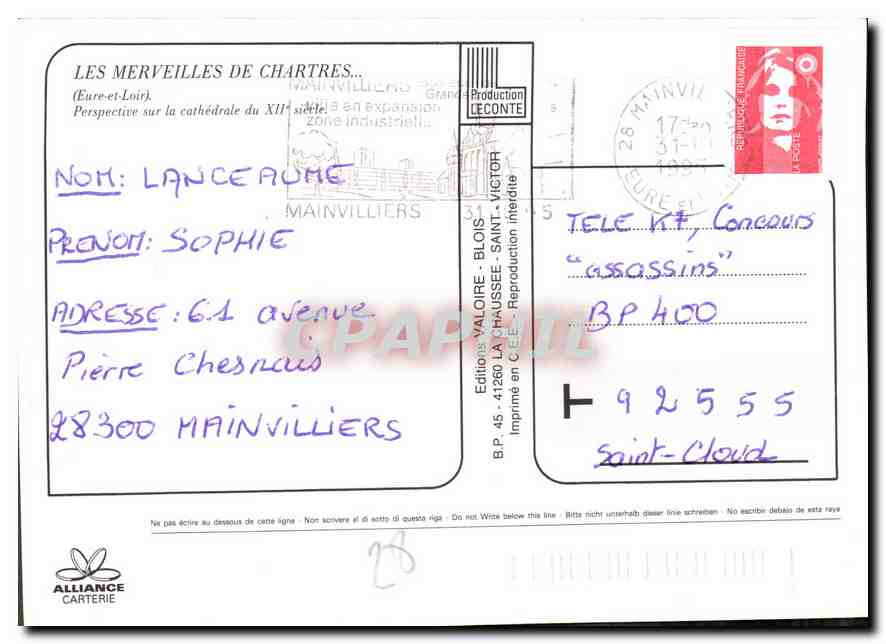 LES MERVEILLES DE CHARTRES...
(Eure-et-Loir).
Perspective sur la cathédrale du XIIe siècle.
MAINVILLIERS
Ville en expansion
zone industrielle
MAINVILLIERS
Production
LECONTE
28 MAINVIL
EURE ET
RÉPUBLIQUE FRANÇAISE
LA POSTE
NOM: LANCEAUME
PRENOM: SOPHIE
ADRESSE: 61 avenue
Pierre Chesnais
28300 MAINVILLIERS
Editions VALOIRE - BLOIS
B.P. 45 - 41260 LA CHAUSSEE - SAINT - VICTOR
Imprimé en C.E.E. - Reproduction interdite
TELE K7, Concours
"assassins"
BP 400
T 92555
Saint-Cloud
CPAPHIL
Ne pas écrire au dessous de cette ligne - Non scrivere al di sotto di questa riga - Do not Write below this line - Bitte nicht unterhalb dieser linie schreiben - No escribir debajo de esta raya
28
ALLIANCE
CARTERIE